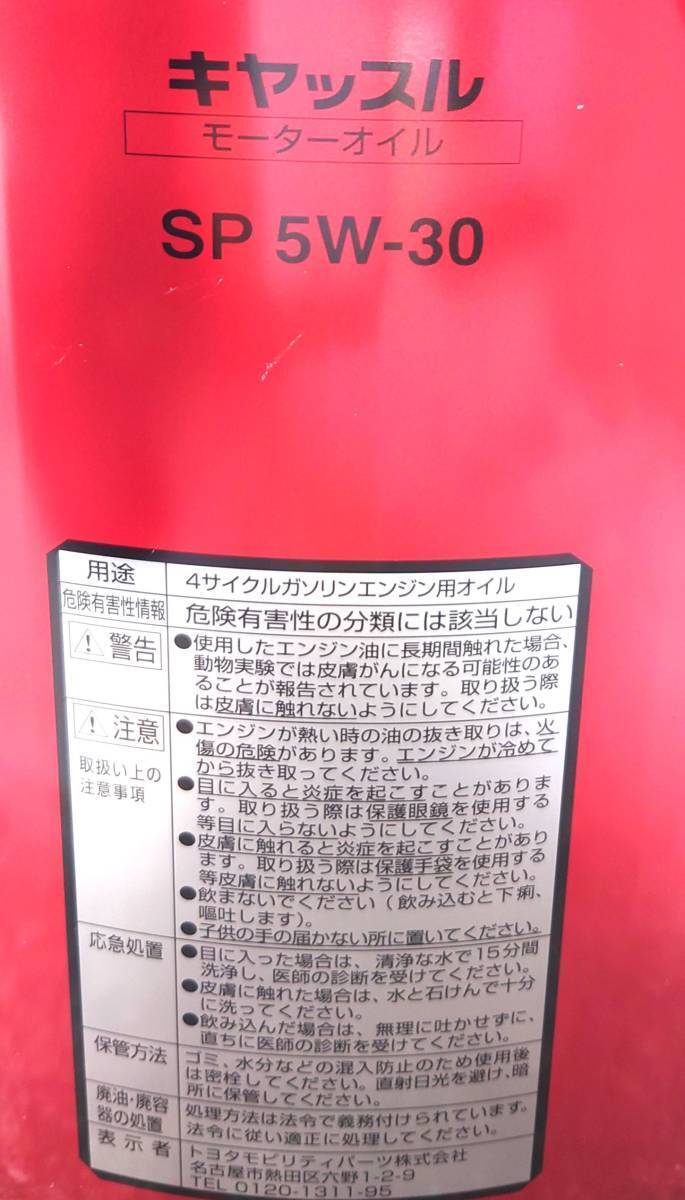 キヤッスル
モーターオイル
SP 5W-30
用途
4サイクルガソリンエンジン用オイル
危険有害性情報
危険有害性の分類には該当しない
警告
●使用したエンジン油に長期間触れた場合、
動物実験では皮膚がんになる可能性のあ
ることが報告されています。取り扱う際
は皮膚に触れないようにしてください。
注意
取扱い上の
注意事項
●エンジンが熱い時の油の抜き取りは、火
傷の危険があります。エンジンが冷めて
から抜き取ってください。
●目に入ると炎症を起こすことがありま
す。取り扱う際は保護眼鏡を使用する
等目に入らないようにしてください。
●皮膚に触れると炎症を起こすことがあり
ます。取り扱う際は保護手袋を使用する
等皮膚に触れないようにしてください。
●飲まないでください(飲み込むと下痢、
嘔吐します)。
●子供の手の届かない所に置いてください。
応急処置
●目に入った場合は、清浄な水で15分間
洗浄し、医師の診断を受けてください。
●皮膚に触れた場合は、水と石けんで十分
に洗ってください。
●飲み込んだ場合は、無理に吐かせずに、
直ちに医師の診断を受けてください。
保管方法
ゴミ、水分などの混入防止のため使用後
は密栓してください。直射日光を避け、暗
所に保管してください。
廃油・廃容
器の処置
処理方法は法令で義務付けられています。
法令に従い適正に処理してください。
表示者
トヨタモビリティパーツ株式会社
名古屋市熱田区六野1-2-9
TEL 0120-1311-95